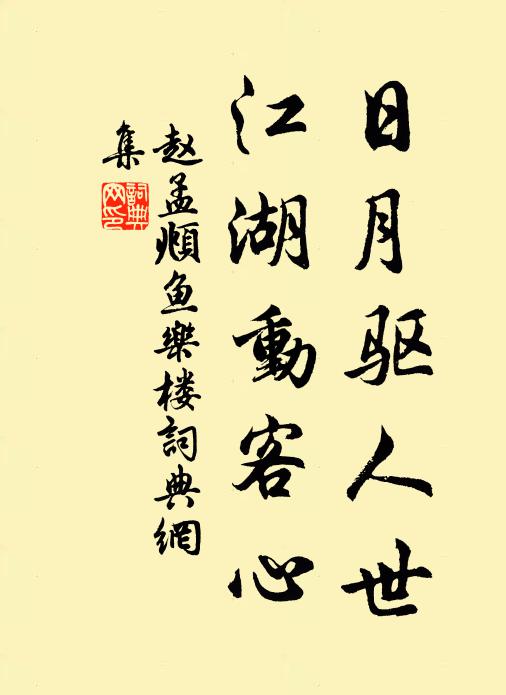 日月驱人世
江湖動客心
赵孟頫鱼樂楼詞典網
集
詞典
网印